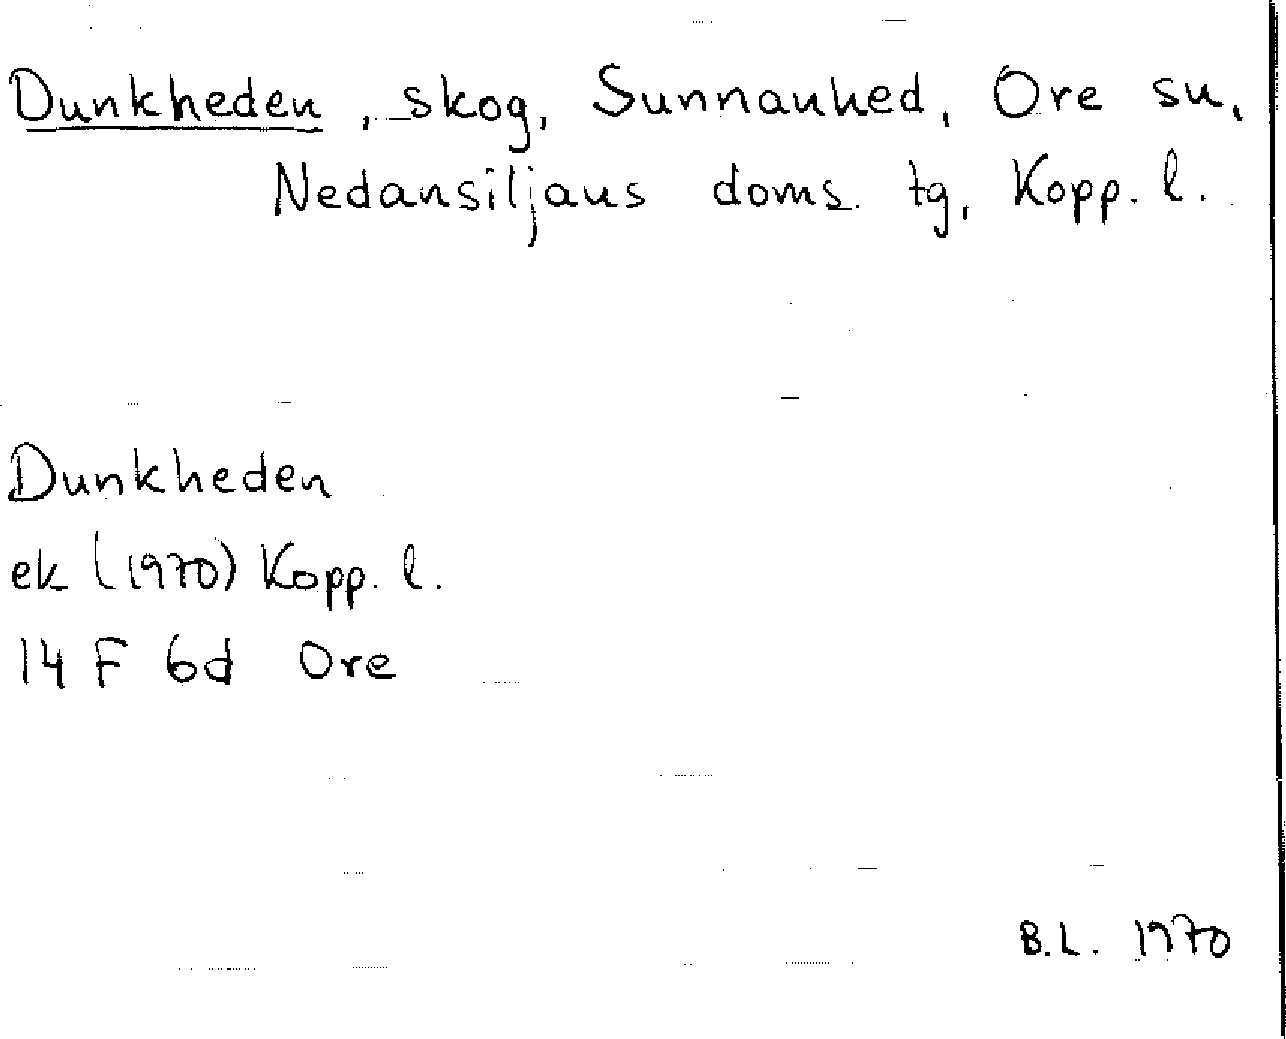 Dunkheden, skog, Sunnanhed, Ore sn,
Nedansiljans doms. tg, Kopp. l.
Dunkheden
ek (1970) Kopp. l.
14 F 6d Ore
B.L. 1970